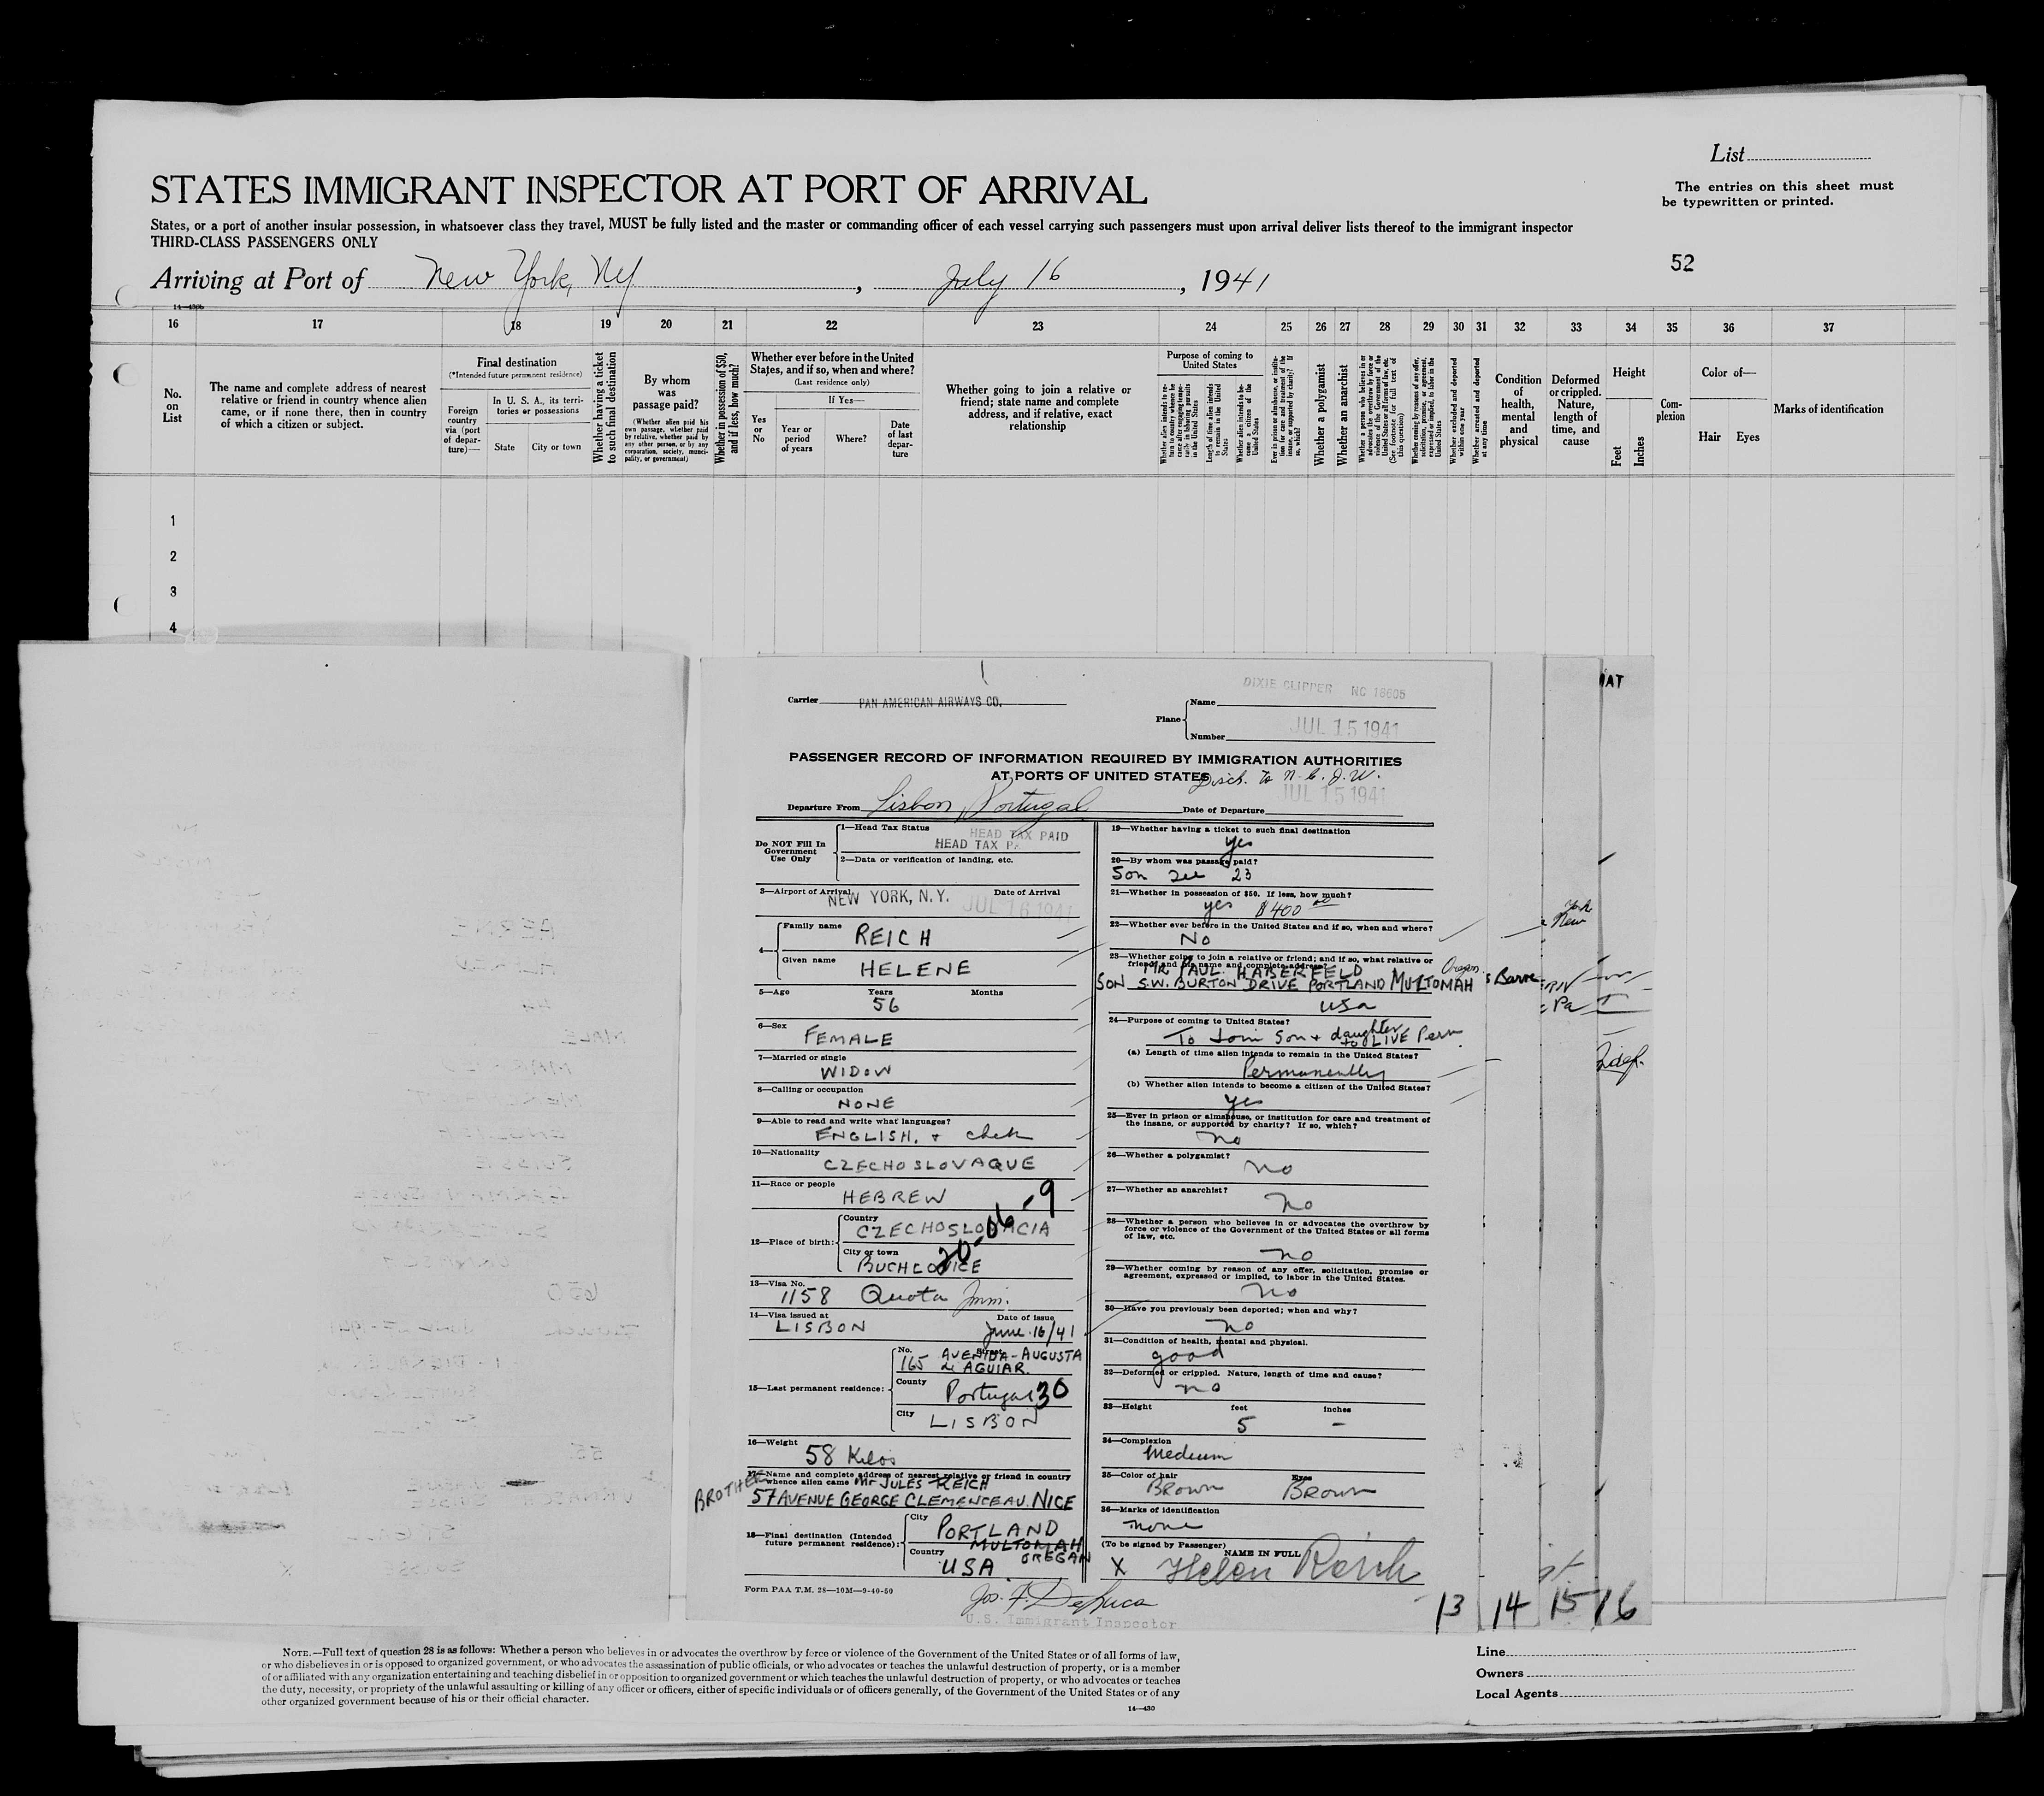 List
STATES IMMIGRANT INSPECTOR AT PORT OF ARRIVAL
The entries on this sheet must
be typewritten or printed.
States, or a port of another insular possession, in whatsoever class they travel, MUST be fully listed and the master or commanding officer of each vessel carrying such passengers must upon arrival deliver lists thereof to the immigrant inspector
THIRD-CLASS PASSENGERS ONLY
52
Arriving at Port of New York, NY, July 16, 1941
16 17 18 19 20 21 22 23 24 25 26 27 28 29 30 31 32 33 34 35 36 37
No. on List
The name and complete address of nearest relative or friend in country whence alien came, or if none there, then in country of which a citizen or subject.
Final destination
(*Intended future permanent residence)
Foreign country via (port of departure)—
In U. S. A., its territories or possessions
State
City or town
Whether having a ticket to such final destination
By whom was passage paid?
(Whether alien paid his own passage, whether paid by relative, whether paid by any other person, or by any corporation, society, municipality, or government)
Whether in possession of $50, and if less, how much?
Whether ever before in the United States, and if so, when and where?
(Last residence only)
Yes or No
If Yes—
Year or period of years
Where?
Date of last departure
Whether going to join a relative or friend; state name and complete address, and if relative, exact relationship
Purpose of coming to United States
Length of time alien intends to remain in the United States
Whether alien intends to become a citizen of the United States
Whether a polygamist
Whether an anarchist
Whether excluded and deported within one year
Whether arrested and deported at any time
Condition of health, mental and physical
Deformed or crippled. Nature, length of time, and cause
Height
Feet
Inches
Complexion
Color of—
Hair
Eyes
Marks of identification
1
2
3
4
Carrier PAN AMERICAN AIRWAYS CO.
DIXIE CLIPPER NC 18605
Plane
Name
Number JUL 15 1941
PASSENGER RECORD OF INFORMATION REQUIRED BY IMMIGRATION AUTHORITIES
AT PORTS OF UNITED STATES
Disch. to N.C.J.W.
JUL 15 1941
Departure From Lisbon, Portugal Date of Departure
Do NOT Fill In Government Use Only
1—Head Tax Status HEAD TAX PAID
HEAD TAX PA
2—Data or verification of landing, etc.
3—Airport of Arrival NEW YORK, N.Y. Date of Arrival JUL 16 1941
4— Family name REICH
Given name HELENE
5—Age Years Months
56
6—Sex
FEMALE
7—Married or single
WIDOW
8—Calling or occupation
NONE
9—Able to read and write what languages?
ENGLISH, + chek
10—Nationality
CZECHOSLOVAQUE
11—Race or people
HEBREW
20-06-9
12—Place of birth: Country
CZECHOSLOVACIA
City or town
BUCHLOVICE
13—Visa No.
1158 Quota Imm.
14—Visa issued at Date of issue
LISBON June 16/41
15—Last permanent residence: No. Street
165 AVENIDA-AUGUSTA
de AGUIAR
County Portugal 30
City LISBON
16—Weight
58 Kilos
17—Name and complete address of nearest relative or friend in country whence alien came Mr JULES REICH
BROTHER
57 AVENUE GEORGE CLEMENCEAU. NICE
18—Final destination (Intended future permanent residence): City PORTLAND
MULTOMAH
OREGAN
Country USA
Form PAA T.M. 28—10M—9-40-50
19—Whether having a ticket to such final destination
yes
20—By whom was passage paid?
Son see 23
21—Whether in possession of $50. If less, how much?
yes $400 00
22—Whether ever before in the United States and if so, when and where?
No
23—Whether going to join a relative or friend; and if so, what relative or friend and his name and complete address?
MR PAUL HABERFELD Oregon
SON S.W. BURTON DRIVE PORTLAND MULTOMAH
USA
24—Purpose of coming to United States?
To Join Son + daughter to LIVE Perm
(a) Length of time alien intends to remain in the United States?
Permanently
(b) Whether alien intends to become a citizen of the United States?
yes
25—Ever in prison or almshouse, or institution for care and treatment of the insane, or supported by charity? If so, which?
no
26—Whether a polygamist?
no
27—Whether an anarchist?
no
28—Whether a person who believes in or advocates the overthrow by force or violence of the Government of the United States or all forms of law, etc.
no
29—Whether coming by reason of any offer, solicitation, promise or agreement, expressed or implied, to labor in the United States.
no
30—Have you previously been deported; when and why?
no
31—Condition of health, mental and physical.
good
32—Deformed or crippled. Nature, length of time and cause?
no
33—Height feet inches
5 –
34—Complexion
Medium
35—Color of hair Eyes
Brown Brown
36—Marks of identification
none
(To be signed by Passenger) NAME IN FULL
X Helen Reich
Jos. F. DeLuca
U.S. Immigrant Inspector
13 14 15 16
NOTE.—Full text of question 28 is as follows: Whether a person who believes in or advocates the overthrow by force or violence of the Government of the United States or of all forms of law,
or who disbelieves in or is opposed to organized government, or who advocates the assassination of public officials, or who advocates or teaches the unlawful destruction of property, or is a member
of or affiliated with any organization entertaining and teaching disbelief in or opposition to organized government or which teaches the unlawful destruction of property, or who advocates or teaches
the duty, necessity, or propriety of the unlawful assaulting or killing of any officer or officers, either of specific individuals or of officers generally, of the Government of the United States or of any
other organized government because of his or their official character.
14—430
Line
Owners
Local Agents